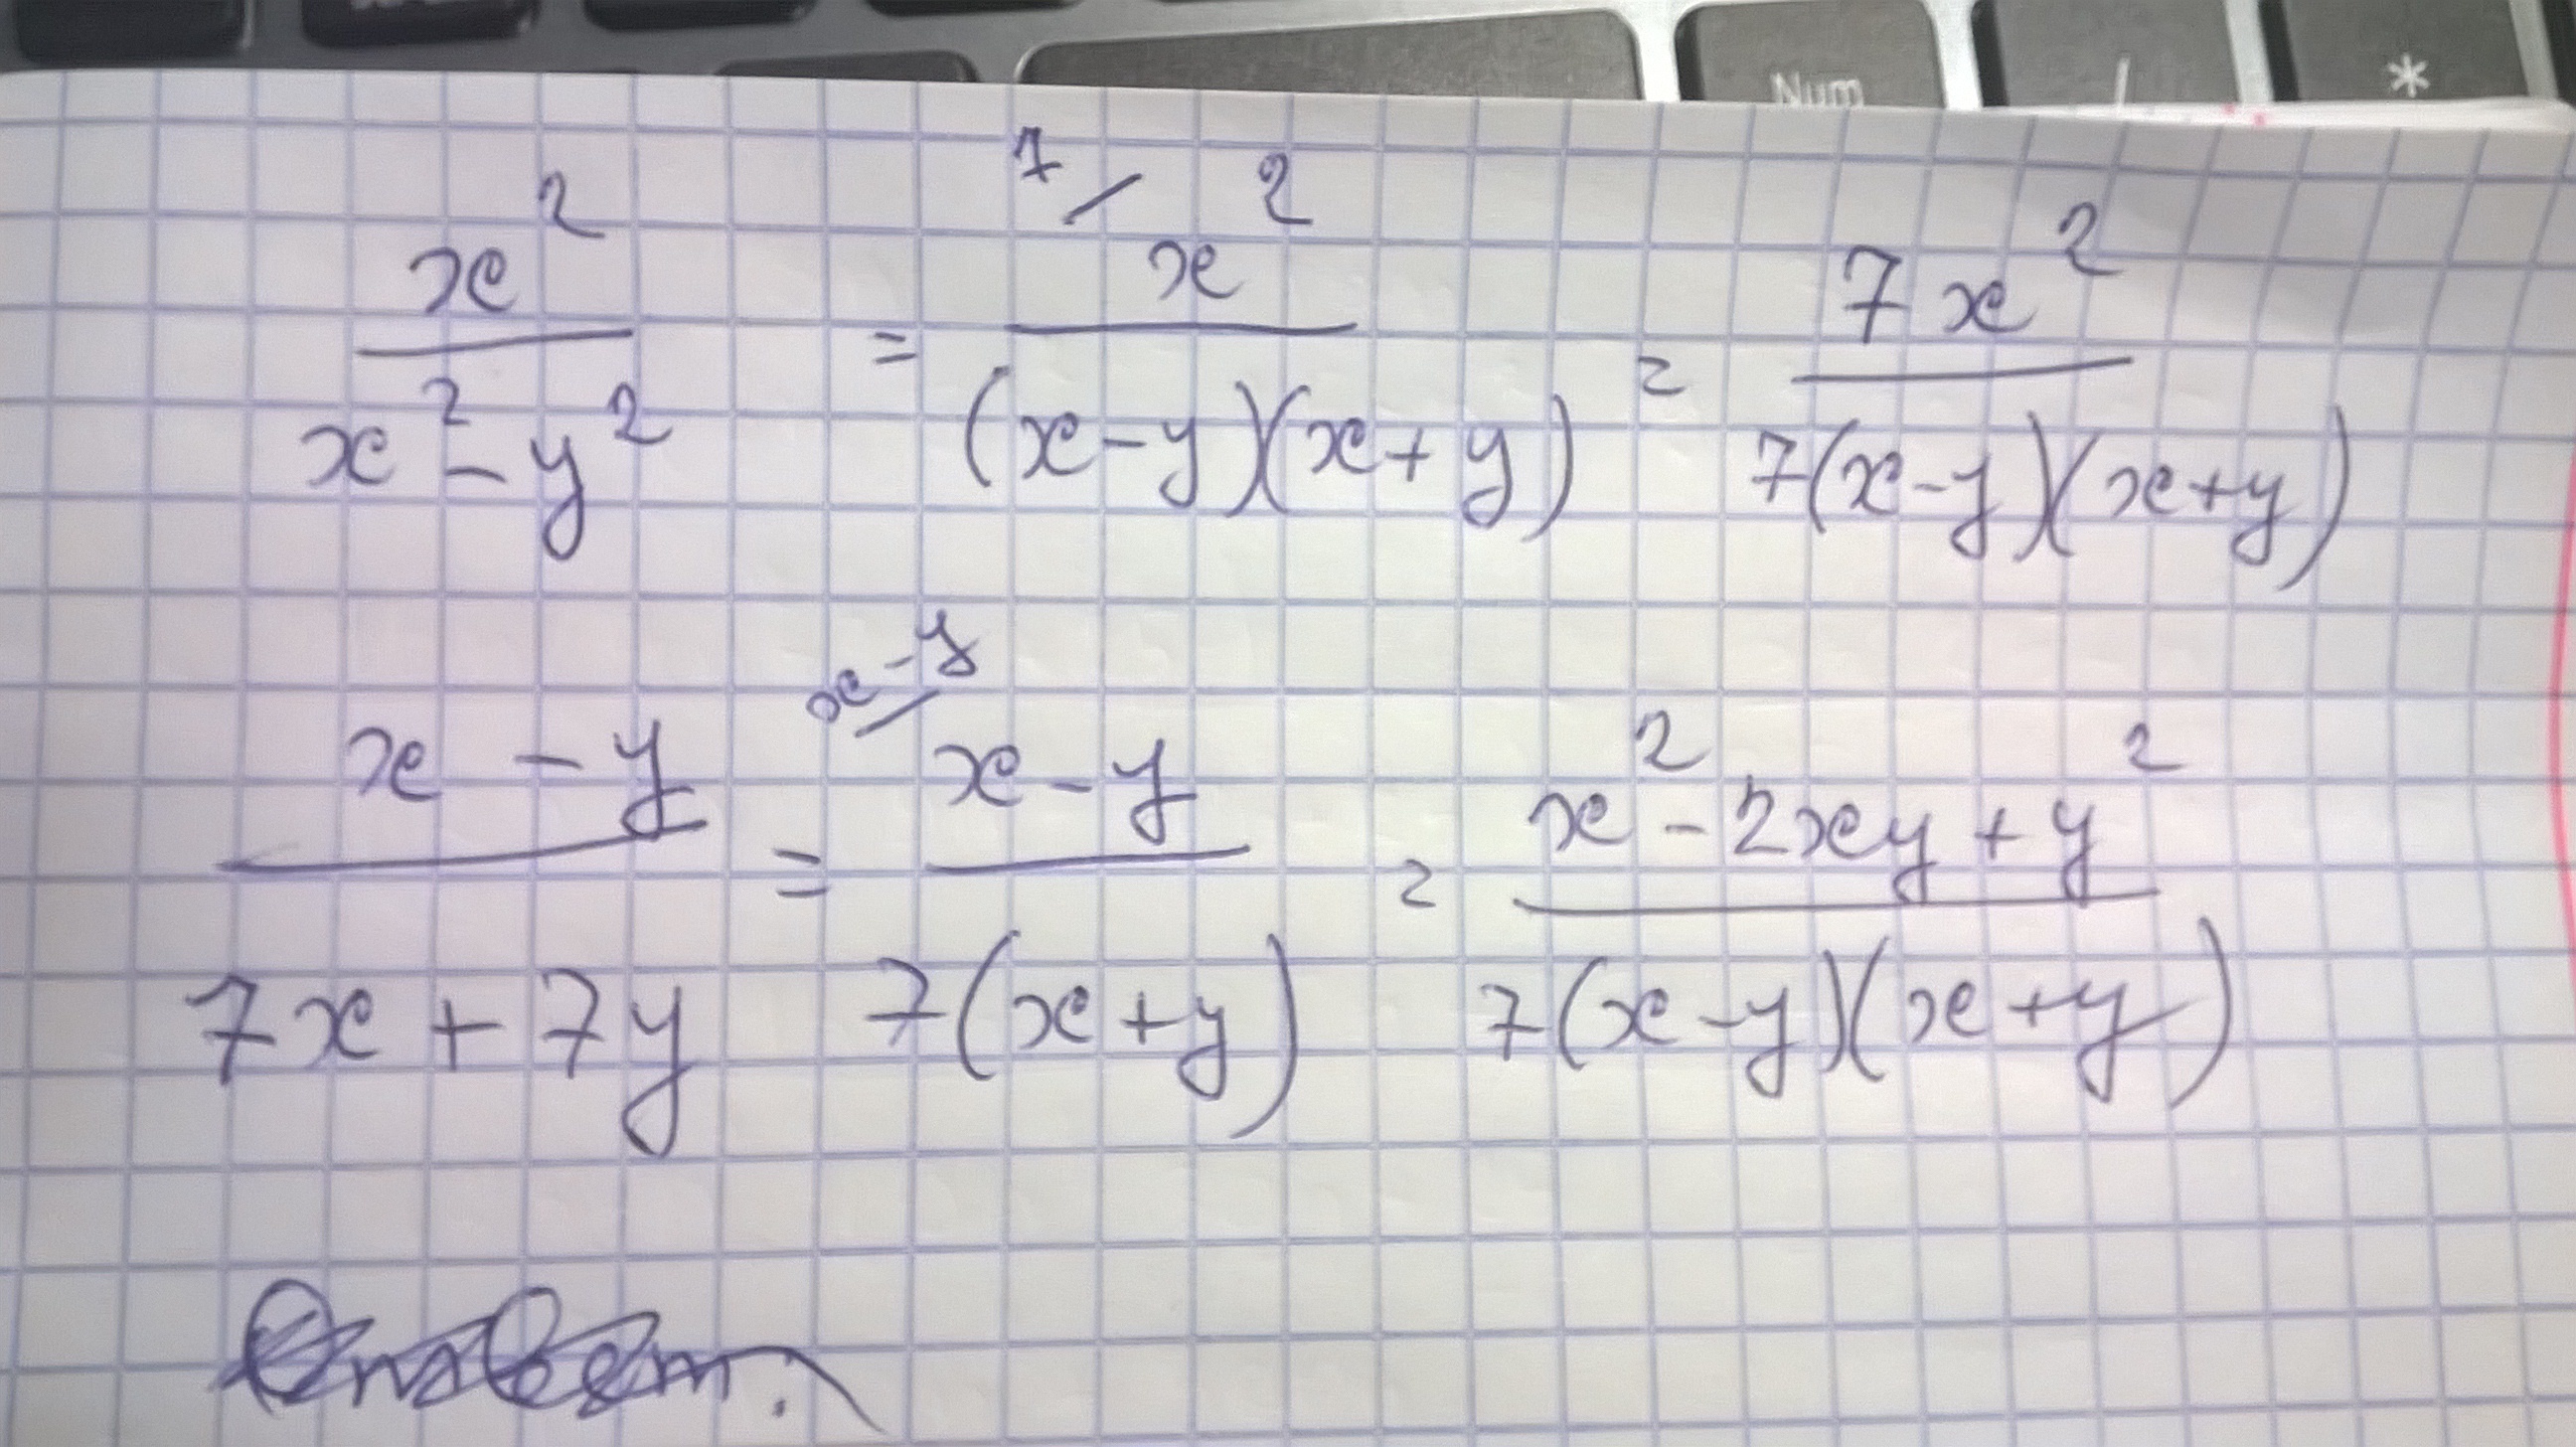 Num / *
x²/(x² - y²) = ⁷/ x²/((x-y)(x+y)) = 7x²/(7(x-y)(x+y))
(x - y)/(7x + 7y) = ˣ⁻ʸ/ (x-y)/(7(x+y)) = (x² - 2xy + y²)/(7(x-y)(x+y))